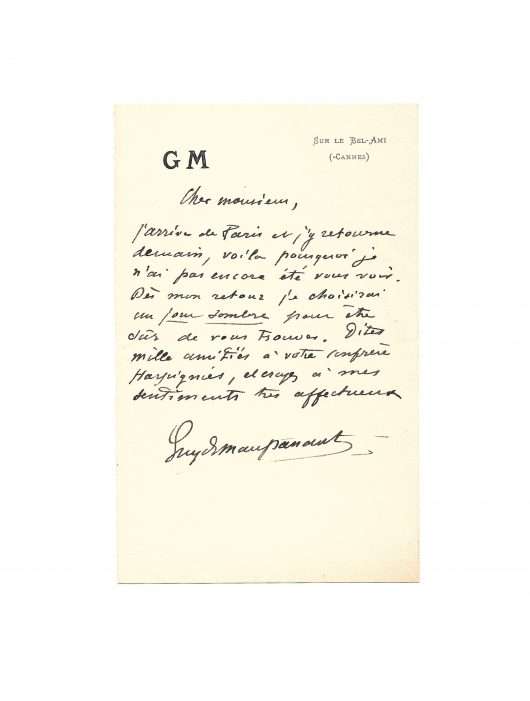 GM
SUR LE BEL-AMI
(-CANNES)
Cher monsieur,
j'arrive de Paris et j'y retourne
demain, voilà pourquoi je
n'ai pas encore été vous voir.
Dès mon retour je choisirai
un jour sombre pour être
sûr de vous trouver. Dites
mille amitiés à votre confrère
Harpignies, et croyez à mes
sentiments très affectueux
Guy de Maupassant